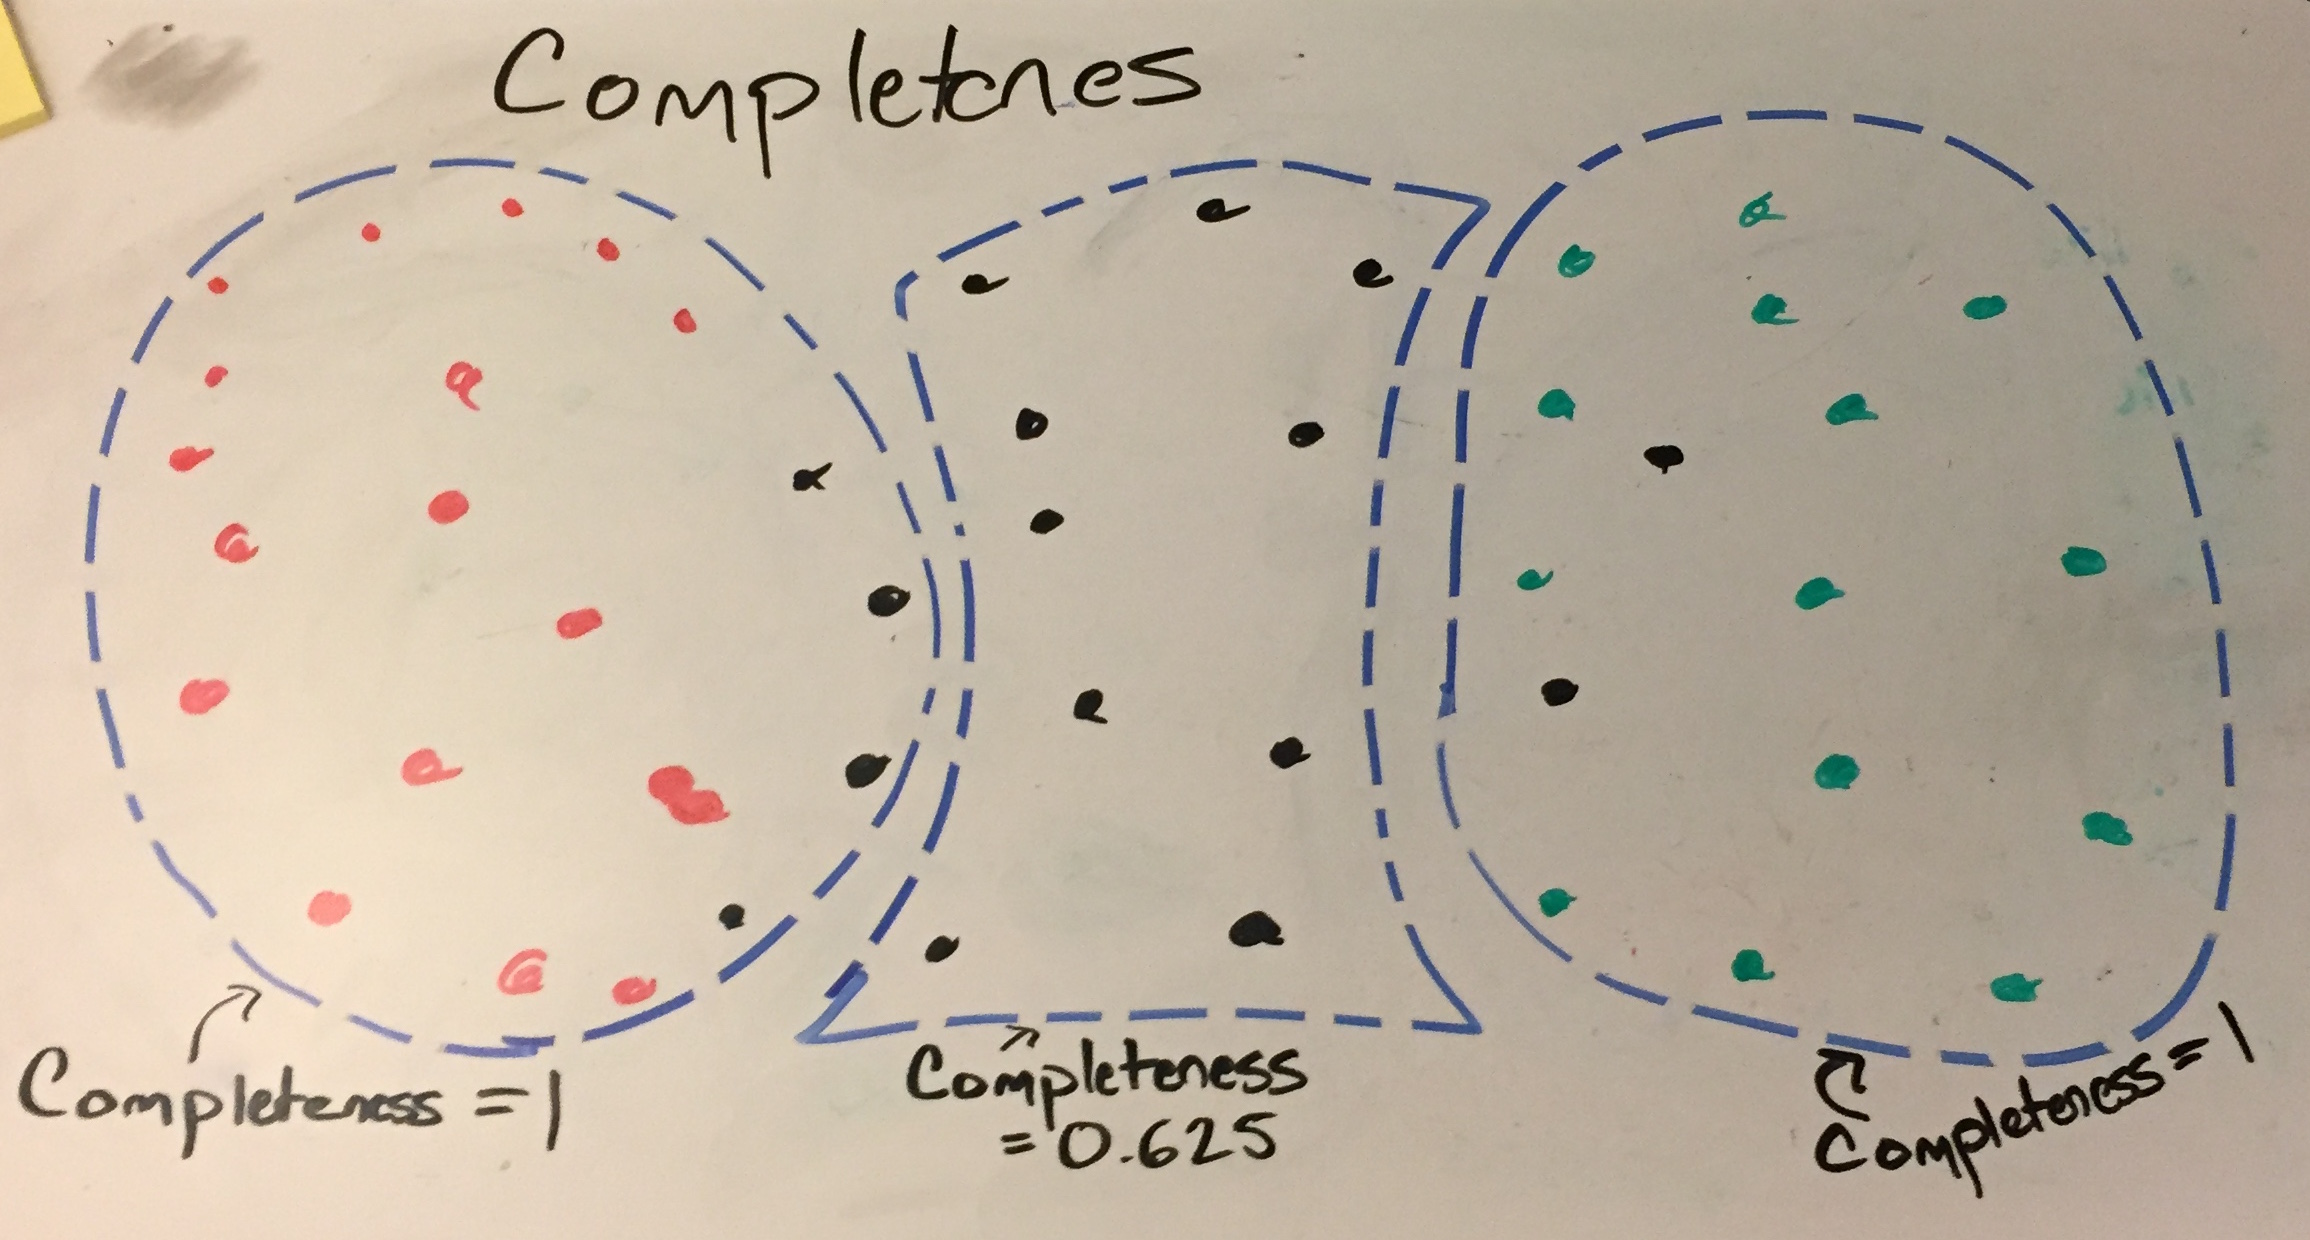 Completenes
Completeness = 1
Completeness
= 0.625
Completeness = 1